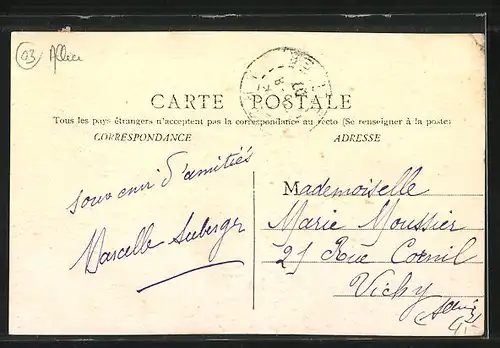 03 Allier
CARTE POSTALE
Tous les pays étrangers n'acceptent pas la correspondance au recto (Se renseigner à la poste)
CORRESPONDANCE
ADRESSE
souvenir d'amitiés
Marcelle Auberger
Mademoiselle
Marie Moussier
25 Rue Cornil
Vichy